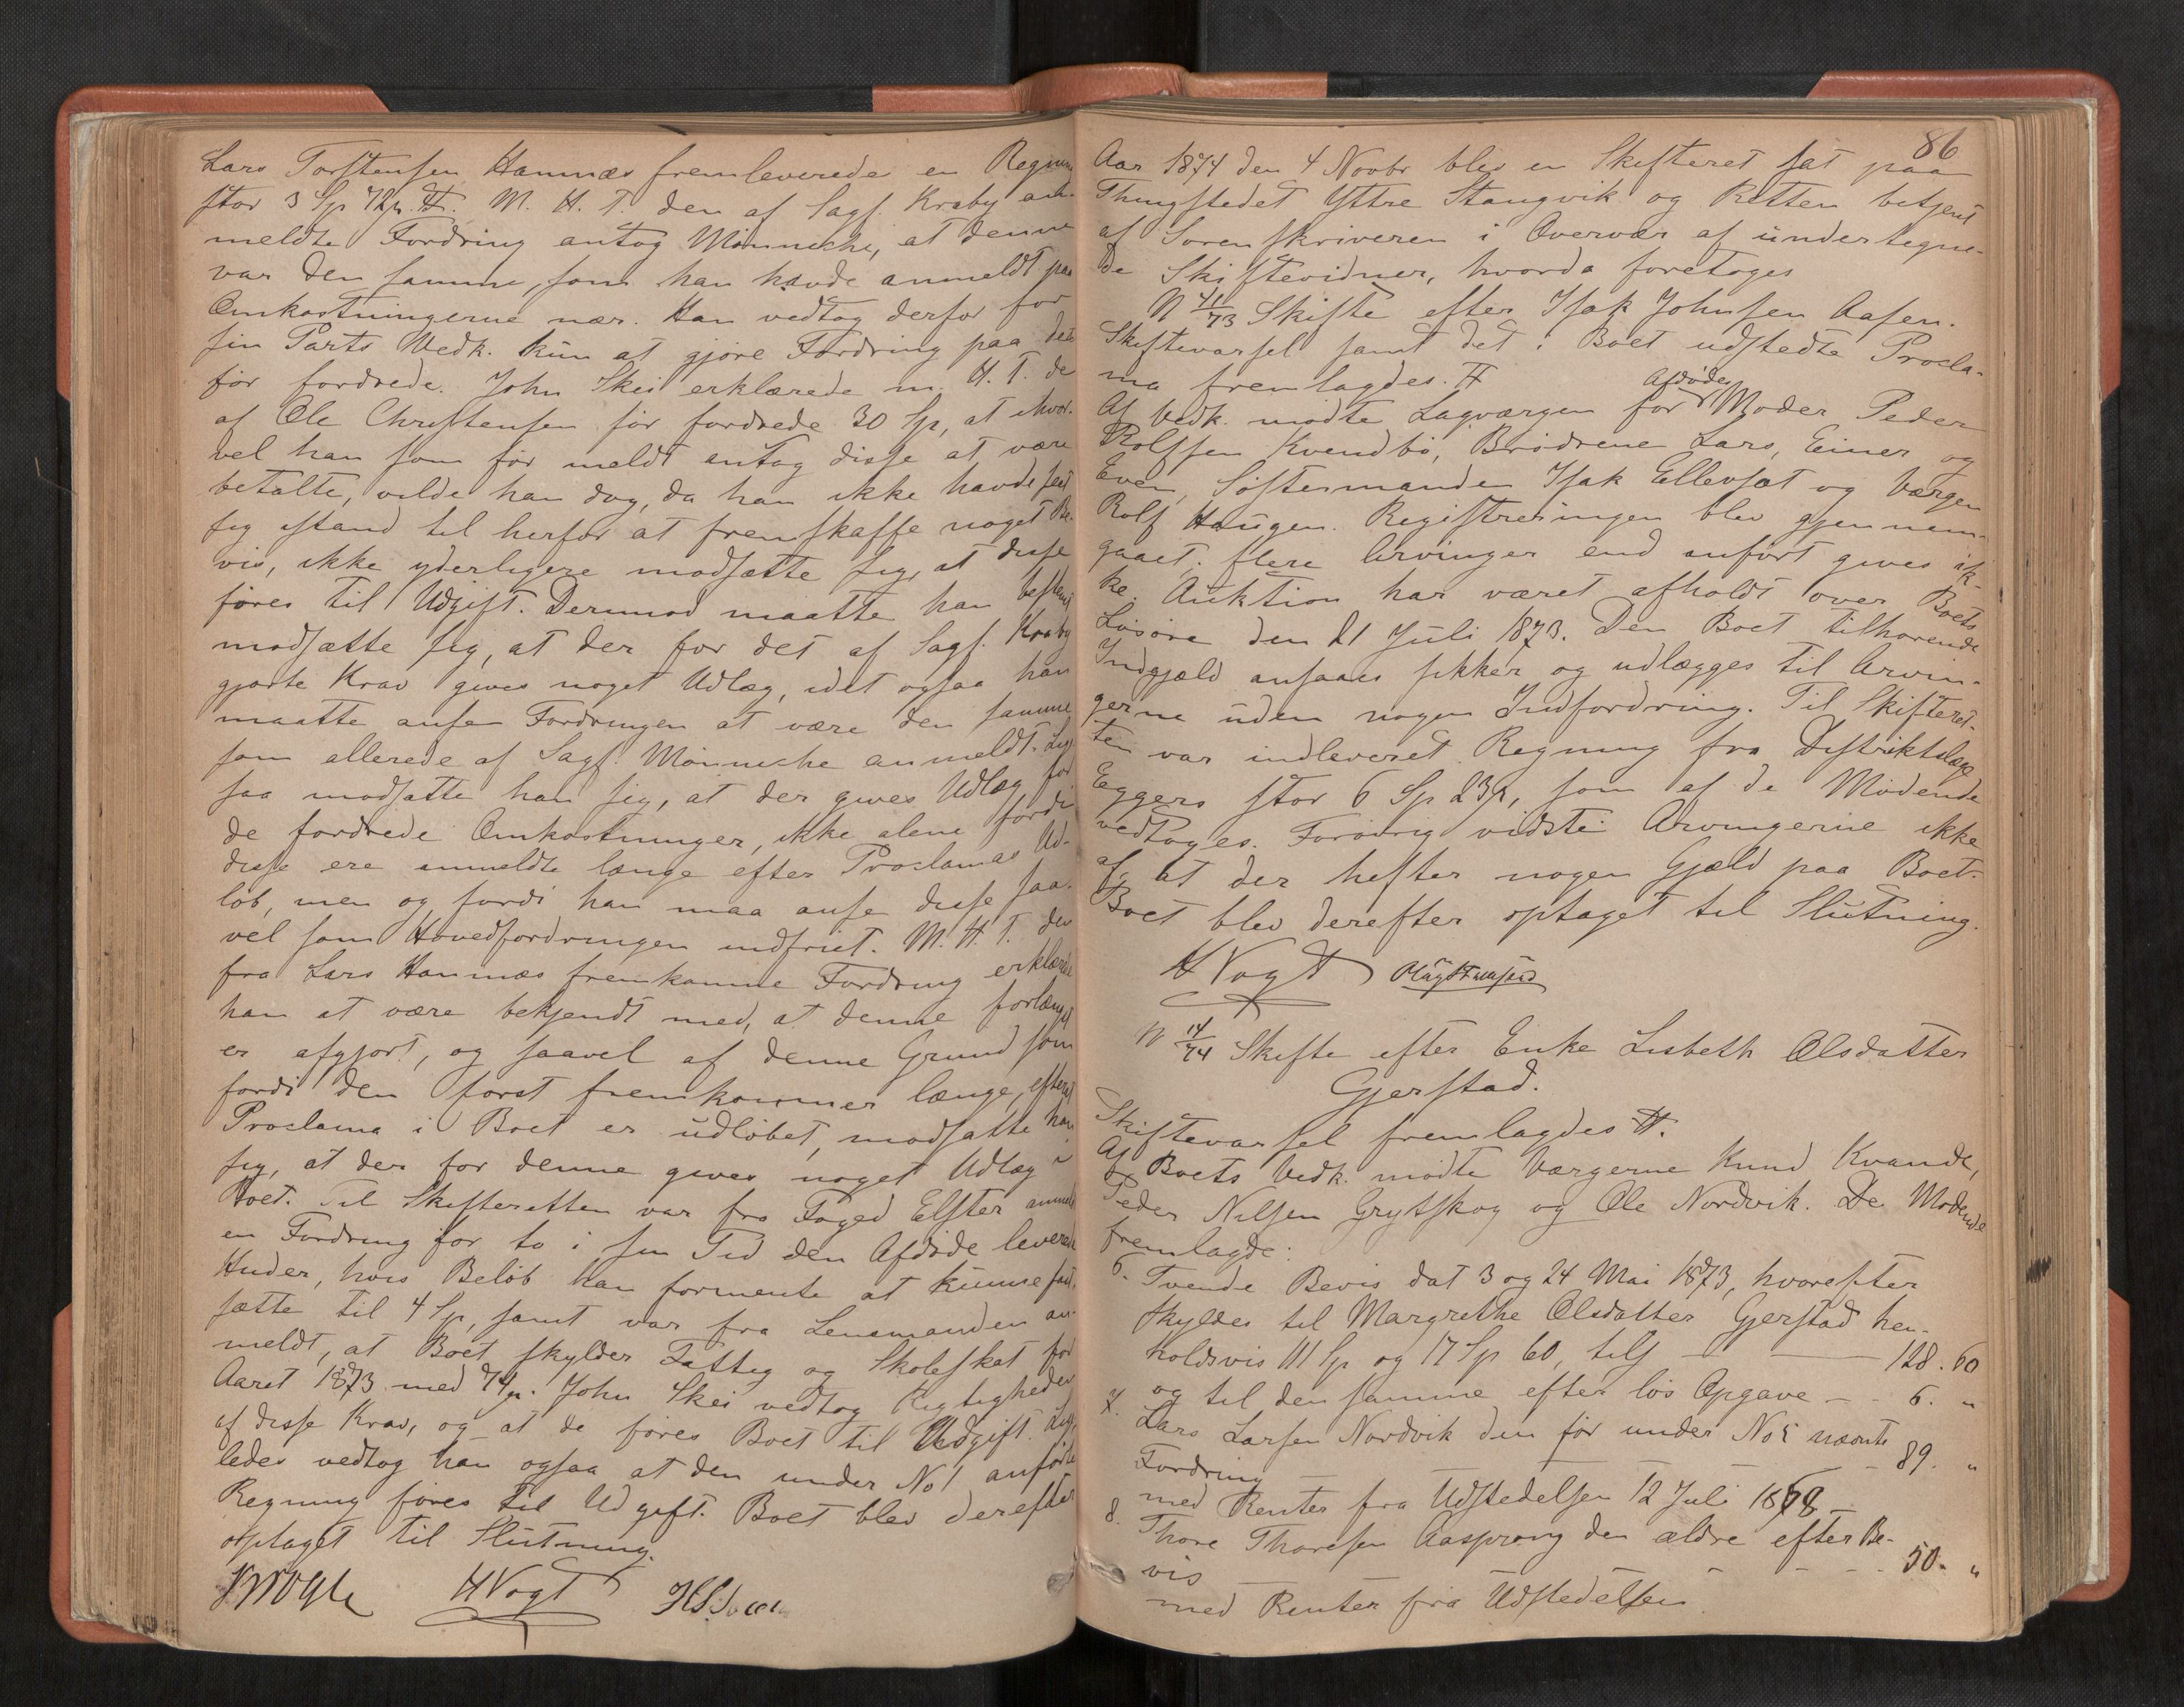 Lars Torstensen Hamnæs fremleverede en Regning
stor 3 Sp 72 . M. H. T. den af Sagf. Kraby an-
meldte Fordring antog Münniche, at denne
var den samme, som han havde anmeldt paa
Omkostningerne nær. Han vedtog derfor for
sin Parts Vedk. kun at gjøre Fordring paa det
før fordrede. John Skei erklærede m. H. T. de
af Ole Christensen før fordrede 30 Sp, at ihvor-
vel han som før meldt antog disse at være
betalte, vilde han dog, da han ikke havde seet
sig istand til herfor at fremskaffe noget Be-
vis, ikke yderligere modsætte sig, at disse
føres til Udgift. Derimod maatte han bestemt
modsætte sig, at der for det af Sagf. Kraby
gjorte Krav gives noget Udlæg, idet ogsaa han
maatte anse Fordringen at være den samme
som allerede af Sagf. Münniche anmeldt. Lige
saa modsatte han sig, at der gives Udlæg for
de fordrede Omkostninger, ikke alene fordi
disse ere anmeldte længe efter Proclamas Ud-
løb, men og fordi han maa anse disse saa-
vel som Hovedfordringen indfriet. M. H. T. den
fra Lars Hamnæs fremkomne Fordring erklærede
han at være bekjendt med, at denne forlængst
er afgjort, og saavel af denne Grund som
fordi den først fremkommer længe, efterat
Proclama i Boet er udløbet, modsatte han
sig, at der for denne gives noget Udlæg i
Boet. Til Skifteretten var fra Foged Elster anmeldt
en Fordring for to i sin Tid den Afdøde leverede
Huder, hvis Beløb han formente at kunne fast-
sætte til 4 Sp, samt var fra Lensmanden an-
meldt, at Boet skylder Fattig og Skoleskat for
Aaret 1873 med 74 . John Skei vedtog Rigtigheden
af disse Krav, og at de føres Boet til Udgift. Lige-
ledes vedtog han ogsaa at den under No 1 anførte
Regning føres til Udgift. Boet blev derefter
optaget til Slutning.
HVogt
86
Aar 1874 den 4 Novbr blev en Skifteret sat paa
Thingstedet Yttre Stangvik og Retten betjent
af Sorenskriveren i Overvær af undertegne-
de Skiftevidner, hvorda foretoges
N 41/73 Skifte efter Isak Johnsen Aasen.
Skiftevarsel samt det i Boet udstedte Procla-
ma fremlagdes. #
Af Vedk. mødte Lagværgen for Afdødes Moder Peder
Rolfsen Kvendbø, Brødrene Lars, Einer og
Even, Søstermanden Isak Ellevsæt og Værgen
Rolf Haugen. Registreringen blev gjennem-
gaaet; flere Arvinger end anført gives ik-
ke. Auktion har været afholdt over Boets
Løsøre den 21 Juli 1873. Den Boet tilhørende
Indgjæld ansaaes sikker og udlægges til Arvin-
gerne uden nogen Indfordring. Til Skifteret-
ten var indleveret Regning fra Distriktslæge
Eggers stor 6 Sp 23 , som af de Mødende
vedtoges. Forøvrig vidste Arvingerne ikke
af, at der hefter nogen Gjæld paa Boet.
Boet blev derefter optaget til Slutning.
HVogt
N 14/74 Skifte efter Enke Lisbeth Olsdatter
Gjerstad.
Skiftevarsel fremlagdes #.
Af Boets Vedk. mødte Værgerne Knud Kvande,
Peder Nilsen Grytskog og Ole Nordvik. De Mødende
fremlagde:
6. Tvende Bevis dat 3 og 24 Mai 1873, hvorefter
skyldes til Margrethe Olsdatter Gjerstad hen-
holdsvis 111 Sp og 17 Sp 60, tils — 128. 60
og til den samme efter løs Opgave — 6. "
7. Lars Larsen Nordvik den før under No 5 nævnte
Fordring — 89. "
med Renter fra Udstedelsen 12 Juli 1868
8. Thore Thoresen Aasprong den ældre efter Be-
vis — 50. "
med Renter fra Udstedelsen